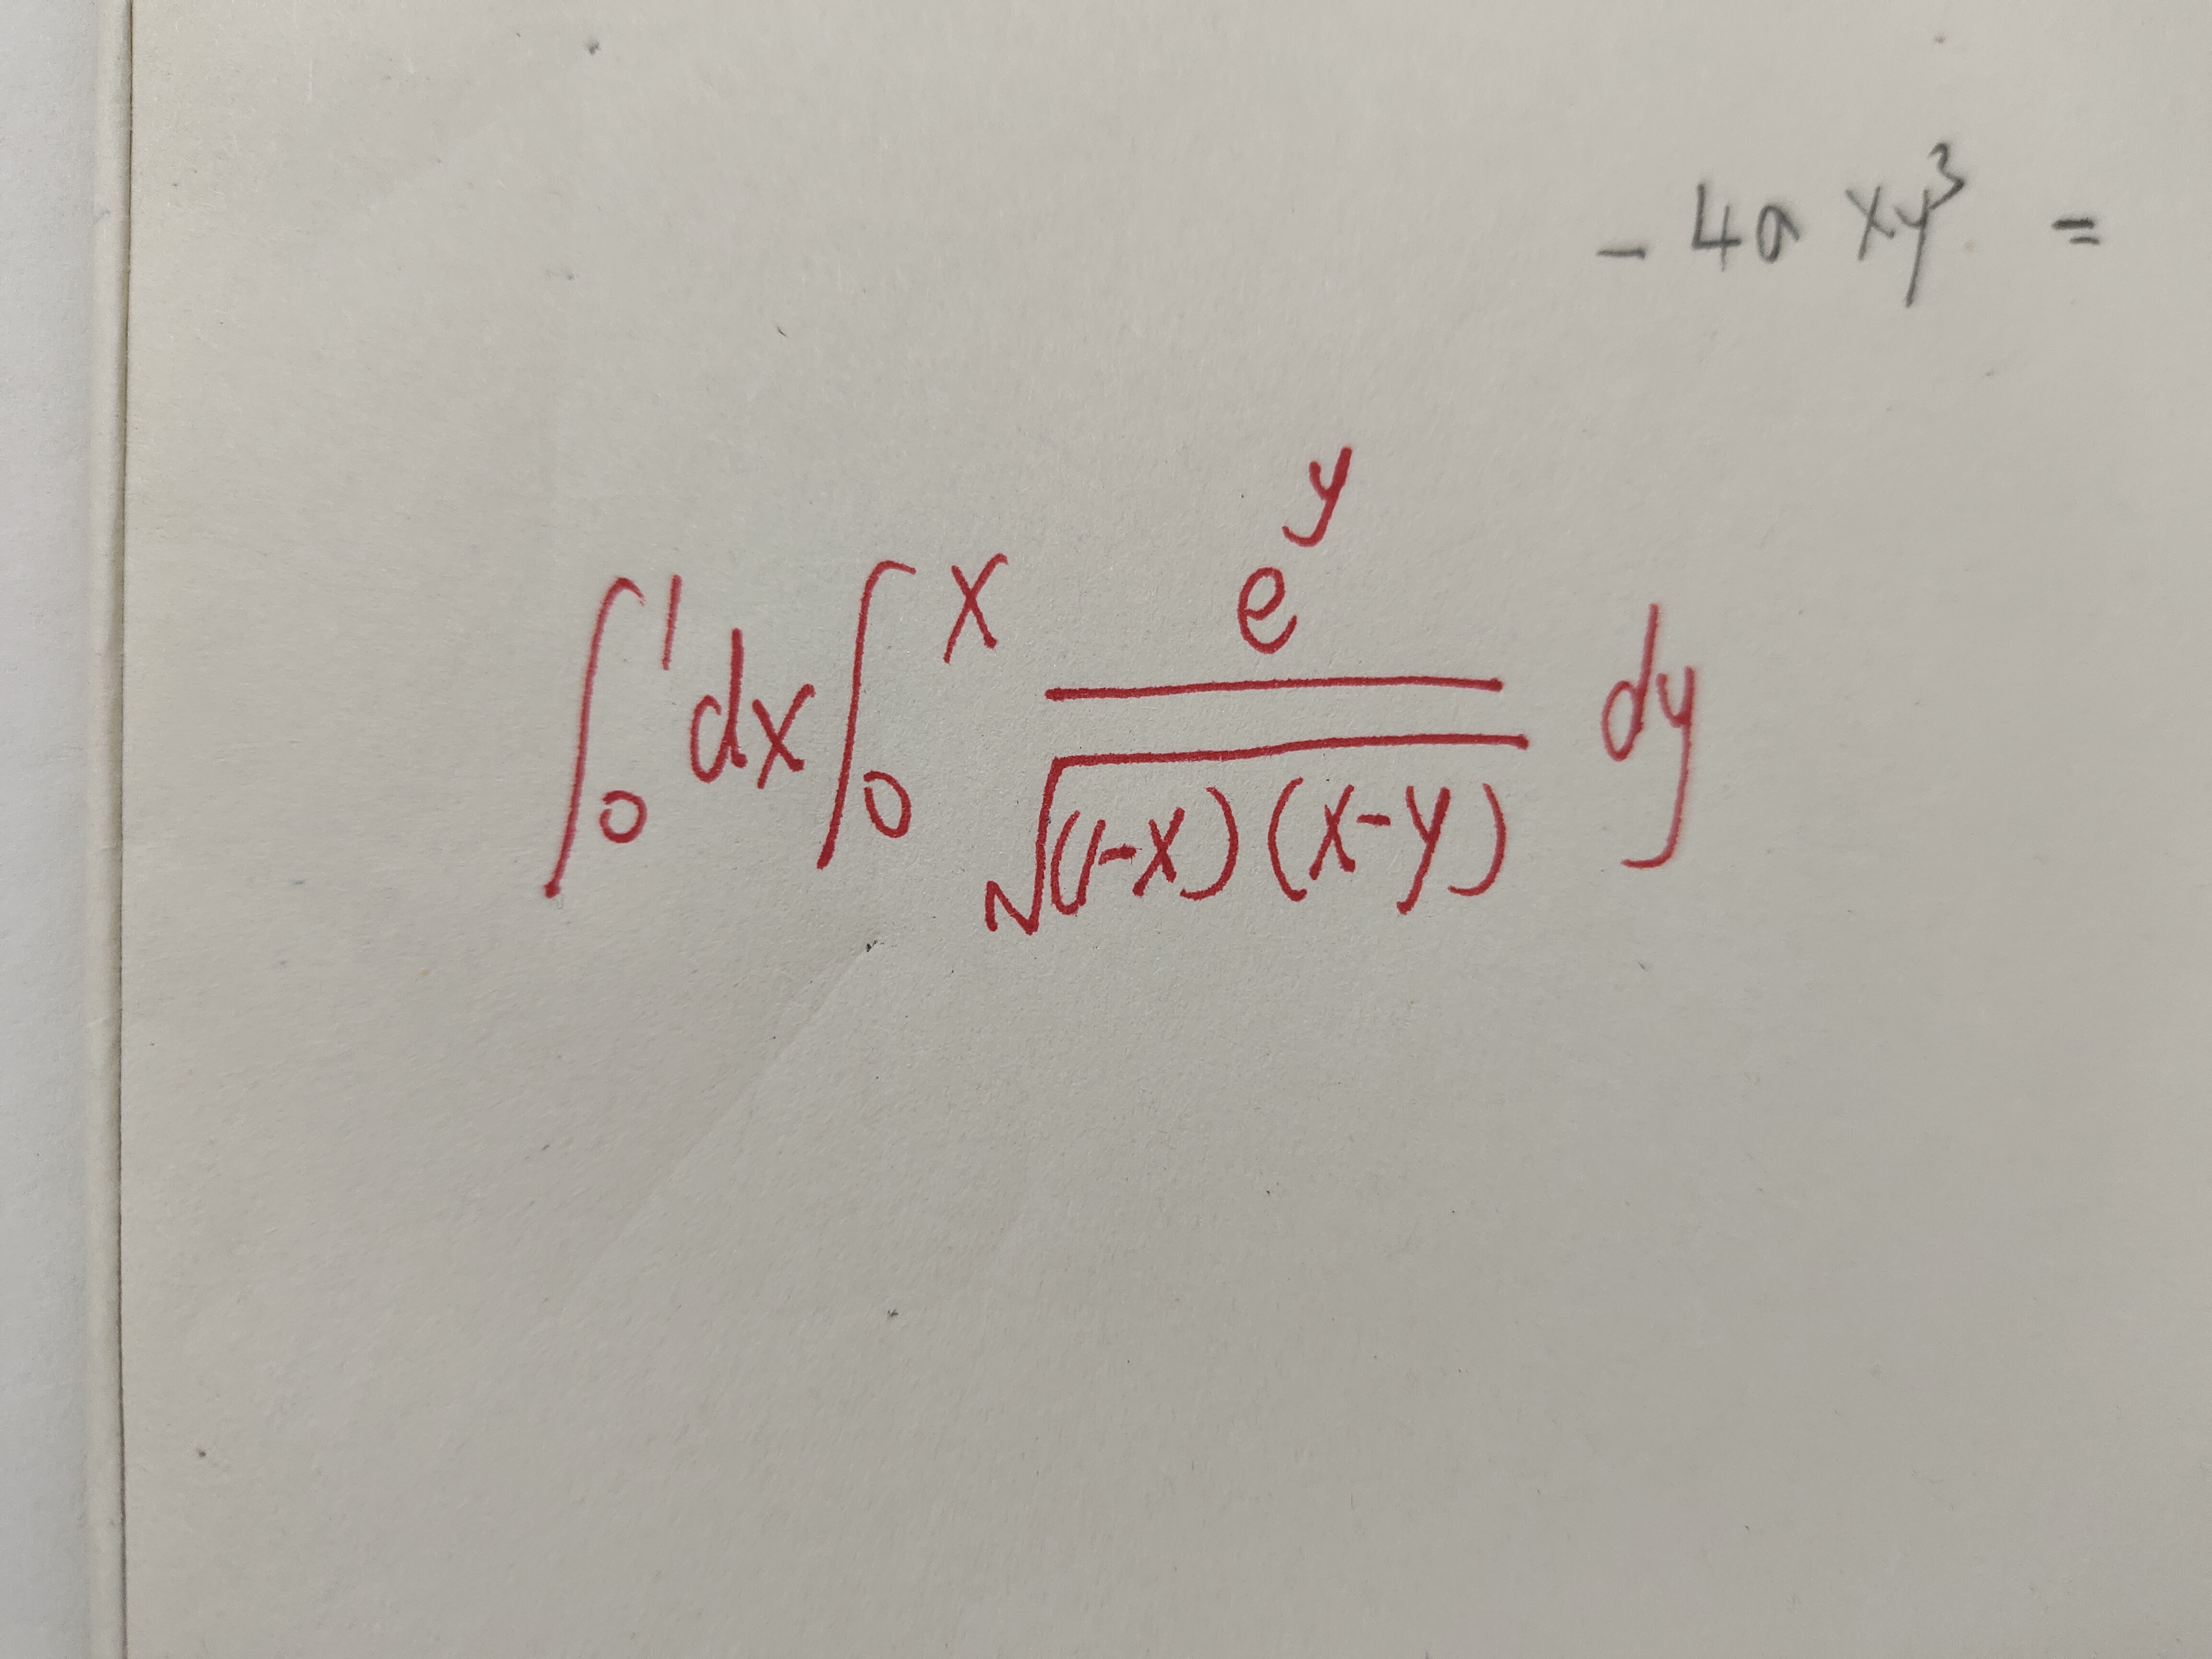 - 4a xy³ =
∫₀¹ dx ∫₀ˣ e^y / √((1-x)(x-y)) dy